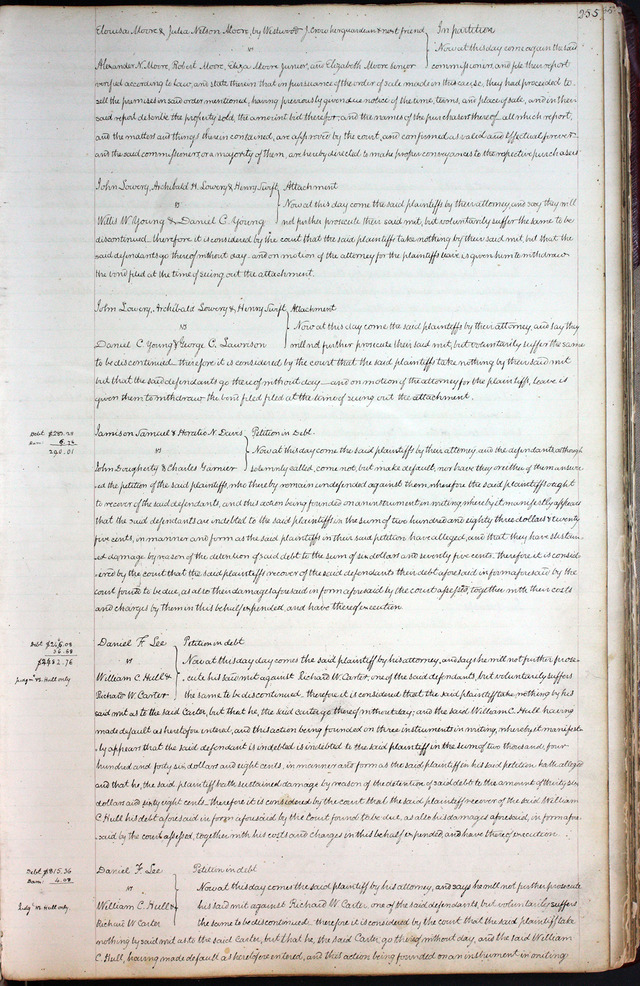 255
Elouisa Moore & Julia Nelson Moore, by Westwood J. Crow her guardian & next friend } In partition
vs Now at this day come again the said
Alexander N. Moore, Robert Moore, Eliza Moore junior, and Elizabeth Moore senior commissioners and file their report
verified according to law, and state therein that in pursuance of the order of sale made in this cause, they had proceeded to
sell the premises in said order mentioned, having previously given due notice of the time, terms, and place of sale, and in their
said report describe the property sold, the amount bid therefor, and the names of the purchasers thereof all which report,
and the matters and things therein contained, are approved by the court, and confirmed as valid and effectual forever
and the said commissioners, or a majority of them, are hereby directed to make proper conveyances to the respective purchasers
John Lowery, Archibald H. Lowery & Henry Swift } Attachment
vs Now at this day come the said plaintiffs by their attorney, and say they will
Willis W Young & Daniel C. Young not further prosecute their said suit, but voluntarily suffer the same to be
discontinued therefore it is considered by the court that the said plaintiffs take nothing by their said suit, but that the
said defendants go thereof without day and on motion of the attorney for the plaintiffs leave is given him to withdraw
the bond filed at the time of suing out the attachment.
John Lowery, Archibald Lowery & Henry Swift } Attachment
vs Now at this day come the said plaintiffs by their attorney, and say they
Daniel C Young & George C. Lawrison will not further prosecute their said suit, but voluntarily suffer the same
to be discontinued therefore it is considered by the court that the said plaintiffs take nothing by their said suit
but that the said defendants go thereof without day and on motion of the attorney for the plaintiffs, leave is
given them to withdraw the bond filed filed at the time of suing out the attachment.
Debt $283.20 Jamison Samuel & Horatio N. Davis } Petition in Debt.
290.01 vs Now at this day come the said plaintiffs by their attorney, and the defendants although
John Dougherty & Charles Garner solemnly called, come not, but make default, nor have they or either of them answer
ed the petition of the said plaintiffs, who thereby remain undefended against them, wherefore the said plaintiffs ought
to recover of the said defendants, and this action being founded on an instrument in writing, whereby it manifestly appears
that the said defendants are indebted to the said plaintiffs in the sum of two hundred and eighty three dollars & twenty
five cents, in manner and form as the said plaintiffs in their said petition have alleged, and that they have sustain
ed damage by reason of the detention of said debt to the sum of six dollars and seventy five cents. therefore it is consid
-ered by the court that the said plaintiffs recover of the said defendants their debt aforesaid in form aforesaid by the
court found to be due, as also their damages aforesaid in form aforesaid by the court assessed, together with their costs
and charges by them in this behalf expended, and have thereof execution
Debt Daniel F. Lee } Petition in debt
36.68 vs Now at this day day comes the said plaintiff by his attorney, and says he will not further prose-
Judgt vs. Hull only William C. Hull & cute his said suit against Richard W. Carter, one of the said defendants, but voluntarily suffers
Richard W. Carter the same to be discontinued. therefore it is considered that the said plaintiff take nothing by his
said suit as to the said Carter, but that he, the said Carter go thereof without day; and the said William C. Hull having
made default as heretofore entered, and this action being founded on three instruments in writing, whereby it manifest-
ly appears that the said defendant is indebted is indebted to the said plaintiff in the sum of two thousand, four
hundred and forty six dollars and eight cents, in manner and form as the said plaintiff in his said petition hath alleged
and that he, the said plaintiff hath sustained damage by reason of the detention of said debt to the amount of thirty six
dollars and sixty eight cents. therefore it is considered by the court that the said plaintiff recover of the said William
C. Hull his debt aforesaid in form aforesaid by the court found to be due, as also his damages aforesaid, in form afore-
said by the court assessed, together with his costs and charges in this behalf expended, and have thereof execution
Debt $815.36 Daniel F. Lee } Petition in debt
Dam: 4.08 vs Now at this day comes the said plaintiff by his attorney, and says he will not further prosecute
Judgt vs. Hull only William C. Hull & his said suit against Richard W. Carter, one of the said defendants, but voluntarily suffers
Richard W Carter the same to be discontinued. therefore it is considered by the court that the said plaintiff take
nothing by said suit as to the said Carter, but that he, the said Carter go thereof without day, and the said William
C. Hull, having made default as heretofore entered, and this action being founded on an instrument in writing